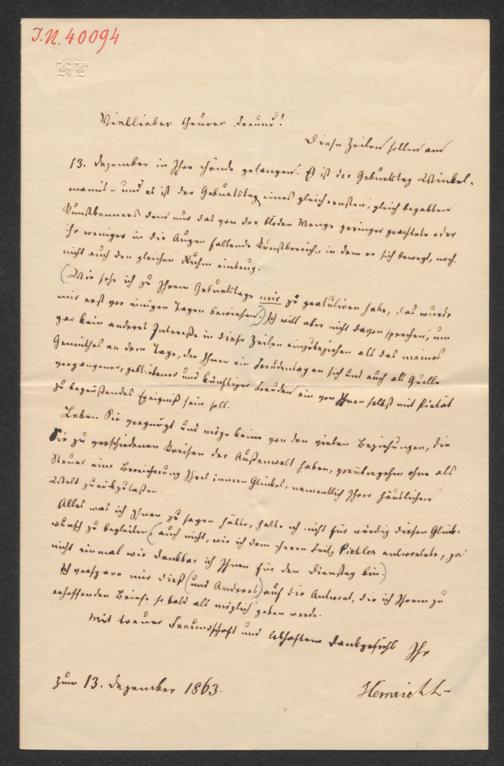 J.N. 40094
Viellieber theurer Freund!
Diese Zeilen sollen am
13. Dezember in Ihre Hände gelangen. Es ist der Geburtstag Winkel-
manns – und es ist der Geburtstag eines gleich ernsten, gleich begabten
Kunstkenners dem nur das von der bloden Menge geringer geachtete oder
ihr weniger in die Augen fallende Kunstbereich, in dem er sich bewegt, noch
nicht auch den gleichen Ruhm eintrug.
(Wie sehr ich zu Ihrem Geburtstage mir zu gratuliren habe, das wurde
mir erst vor einigen Tagen bewiesen.) Ich will aber nicht davon sprechen, um
gar kein anderes Interesse in diese Zeilen einzubeziehen als das meines
Gemüthes an dem Tage, der Ihnen ein Freudentag an sich und auch als Quelle
vergangener, gebliebener und künftiger Freuden ein von Ihnen selbst mit Pietät
zu begrüßendes Ereigniß sein soll.
Leben Sie vergnügt und möge keine von den vielen Beziehungen, die
Sie zu verschiedenen Kreisen der Außenwelt haben, vorübergehn ohne als
Steuer eine Bereicherung Ihres innern Glückes, namentlich Ihrer häuslichen
Welt zurückzulassen.
Alles was ich Ihnen zu sagen hätte, halte ich nicht für würdig diesen Glück-
wunsch zu begleiten (auch nicht, wie ich dem Herrn Fritz Pichler antwortete, ja
nicht einmal wie dankbar ich Ihnen für den Dienstag bin.)
Ich verspare mir dieß (und Anderes) auf die Antwort, die ich Ihrem zu
erhoffenden Briefe so bald als möglich geben werde.
Mit treuer Freundschaft und lebhaftem Dankgefühl Ihr
zum 13. Dezember 1863.